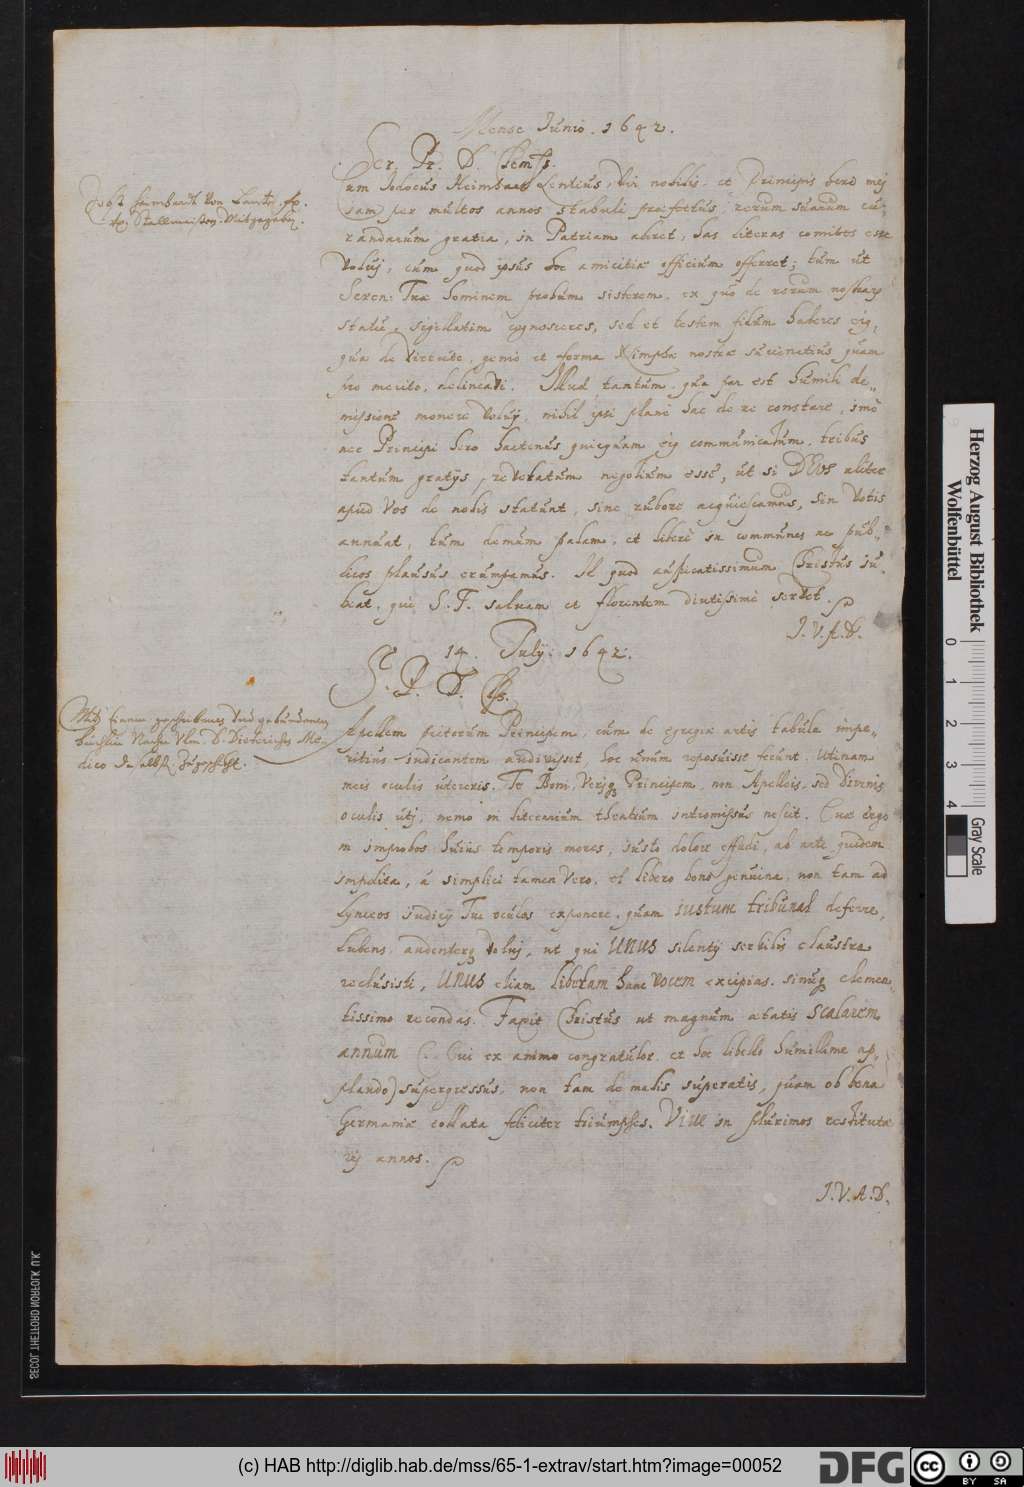 Mense Junio. 1642.
Ser. Pr. D. Clemss.
Jobst Heimbardt von
Stallmeistern Mitgegeben.
um Jodocus Heimbart Lentius, vir nobilis, et Principis heri mej
jam per multos annos stabuli praefectus, rerum suarum cu-
randarum gratia, in Patriam abiret, has literas comites esse
volui, cum quod ipsus hoc amicitiae officium offerret; tum ut
Seren: Tuae hominem probum sisterem, ex quo de rerum nostrarum
statu, sigillatim cognosceres, sed et testem fidum haberes eiq,
qua de virtute, genio et forma Nimphae nostrae succinctius quam
pro merito, delineavi. Illud tantum, qua par est humili de-
missione monere volui, nihil ipsi plane hac de re constare, imo
nec Principi hero hactenus quicquam communicatum, tribus
tantum gratiis, revelatum negotium esse, ut si DEVS aliter
apud Vos de nobis statunt, sine rubore acquiescamus, sin votis
annuat, tum demum palam, et libere in communes ac pub-
licos plausus erumpamus. Id quod auspicatissimum Christus ju-
beat, qui S. T. salvam et florentem diutissime servet.
I. V. A. D.
14. Julij. 1642.
S. P. D. Clss.
Mitt einem geschriebenen vnd gebundenen
büchlin Nacher Vlm. D. Dieterichs Me-
dico daselbst zugeschickt.
Apellem pictorum Principem, cum de egregia artis tabula impe-
ritius indicantem audivisset, hoc unum reposuisse ferunt. Utinam
meis oculis utereris. Te Boni, Veriq Principem, non Apelleis, sed Divinis
oculis uti, nemo in literarium theatrum intromissus nescit. Quae ergo
in improbos hujus temporis mores, justo dolore effudi, ab arte quidem
impolita, a simplici tamen vero, et libero bono genuina, non tam ad
Lynceos judicij Tui oculos exponere, quam justum tribunal deferre,
Lubens, audenterq volui, ut qui UNUS silentij servilis claustra
reclusisti, UNUS etiam liberam hanc vocem excipias, sinuq clemen-
tissimo recondas. Faxit Christus ut magnum aetatis scalarem
annum (Cui ex animo congratulor, et hoc libello humillime ap-
plaudo) supergressus, non tam de malis superatis, quam ob bena
Germaniae collata feliciter triumphes. Vive in plurimos restituta
annos.
I. V. A. D.
Herzog August Bibliothek
Wolfenbüttel
0 1 2 3 4
Gray Scale
SECOL THETFORD NORFOLK U.K.
(c) HAB http://diglib.hab.de/mss/65-1-extrav/start.htm?image=00052
DFG
cc BY SA